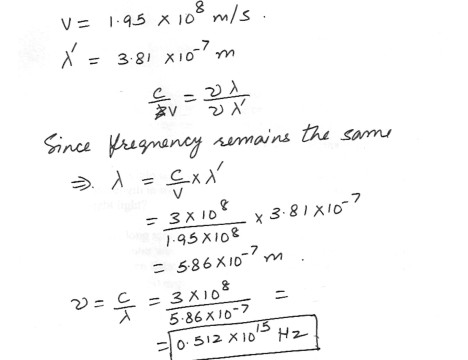 V = 1.95 × 10⁸ m/s.
λ' = 3.81 × 10⁻⁷ m
c/V = νλ/νλ'
Since freqnency remains the same
⇒. λ = c/V × λ'
= 3 × 10⁸/1.95 × 10⁸ × 3.81 × 10⁻⁷
= 5.86 × 10⁻⁷ m .
ν = c/λ = 3 × 10⁸/5.86 × 10⁻⁷ =
= 0.512 × 10¹⁵ Hz